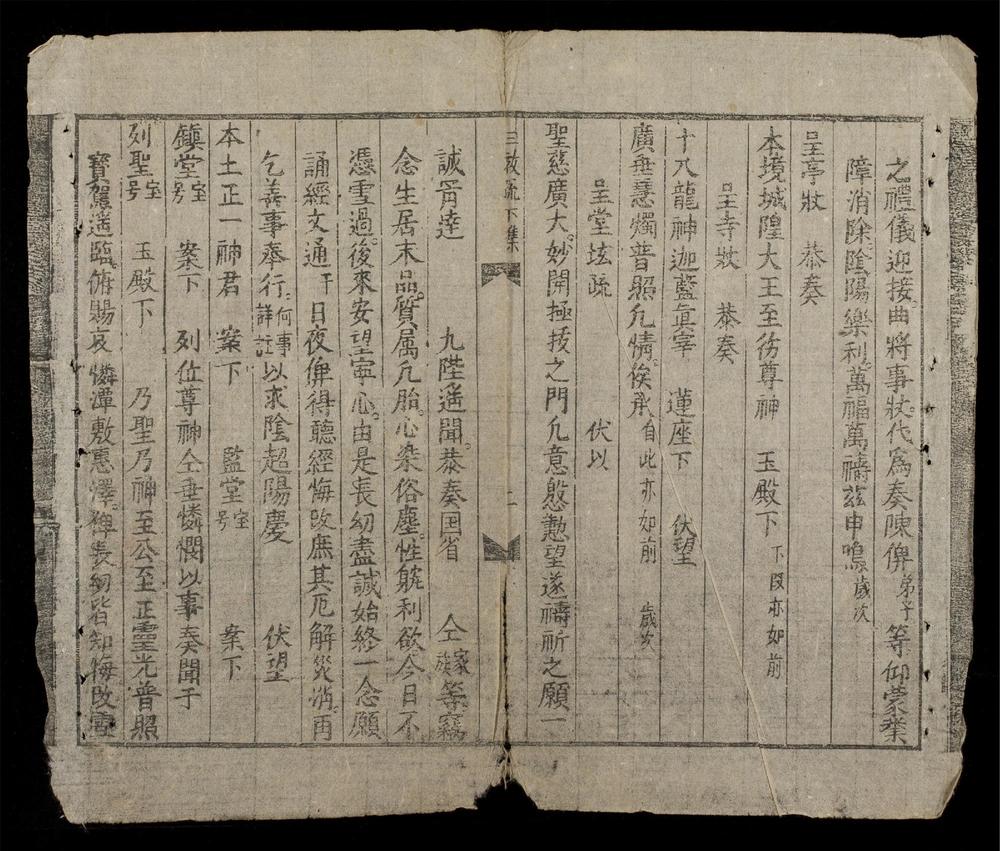 之禮儀迎接。曲將事狀。代為奏陳俾弟子等仰蒙業
障消除。陰陽樂利。萬福萬禱玆申嗚歲次
呈亭狀 恭奏
本境城隍大王至彷尊神 玉殿下下叚亦如前
呈寺狀 恭奏
十八龍神迦藍眞宰 蓮座下 伏望
廣垂慧燭普照凢情。俟承自此亦如前 歲次
呈堂坛疏 伏以
聖慈廣大。妙開極技之門凢意慇懃望遂禱祈之願一
三教疏下集 二
誠胥達 九陛遙聞。恭奏国省 仝家族等竊
念生居末品。質属凢胎。心染俗塵。性躭利欲今日不
憑雪過。後來安望寧心。由是長幼盡誠始終一念願
誦經文通于日夜俾得聽經悔改庶其厄解災消。再
乞善事奉行。何事詳註以求陰超陽慶 伏望
本土正一神君 案下 監堂宝号 案下
鎮堂宝号 案下 列位尊神仝垂憐憫以事奏聞于
列聖宝号 玉殿下 乃聖乃神至公至正靈光普照
寳駕遙臨。俯賜哀憐潭敷惠澤。俾長幼皆知悔改雪